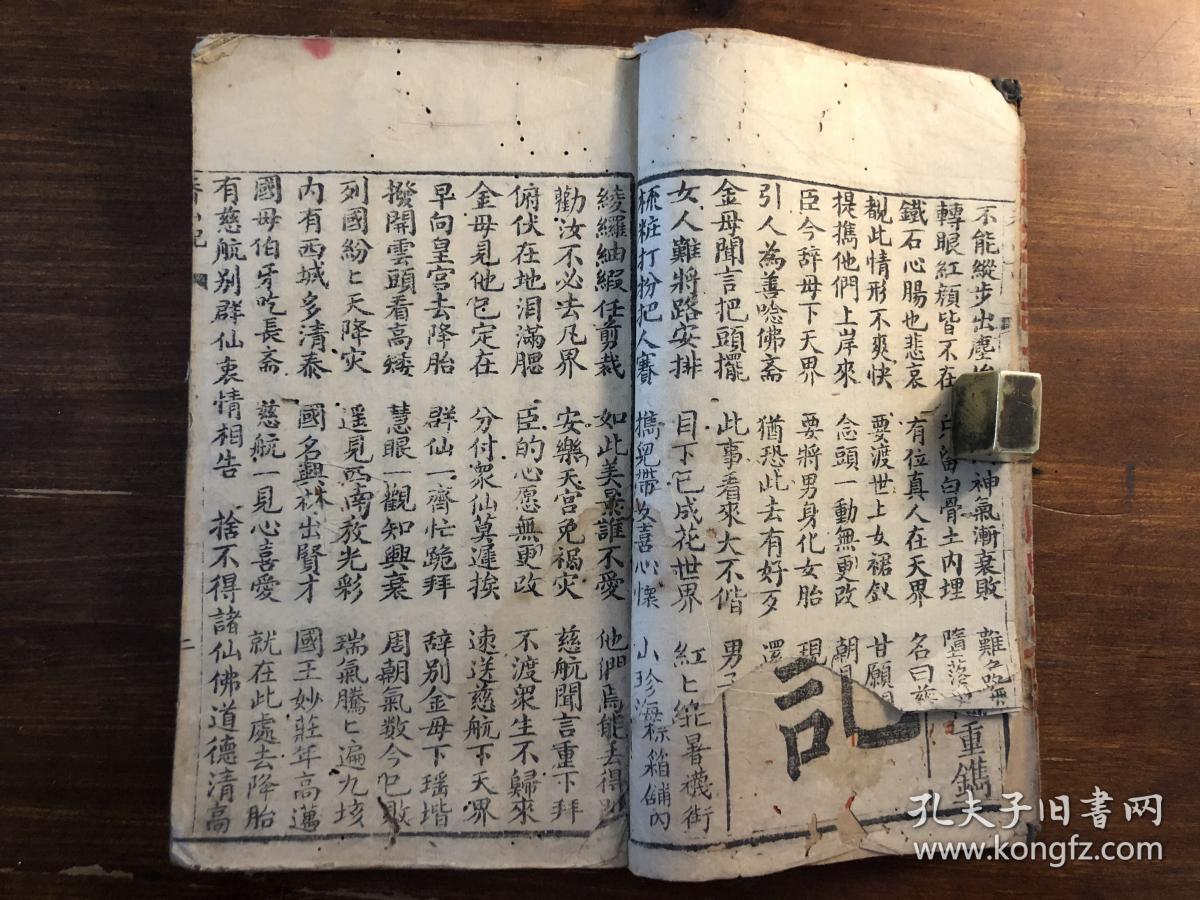 不能縱步出塵 神氣漸衰敗 難
轉眼紅顏皆不在 只留白骨土內埋 墮落
鐵石心腸也悲哀 有位真人在天界 名曰慈
覩此情形不爽快 要渡世上女裙釵 甘願
提携他們上岸來 念頭一動無更改 朝
臣今辞母下天界 要將男身化女胎 現
引人為善唸佛斋 猶恐此去有好歹 還
金母聞言把頭擺 此事看來大不偕 男
女人難將路安排 目下已成花世界 紅〻綠暑襪街
梳粧打扮把人賽 携兒帶女喜心懷 小珍海標箱舖內
記
重鐫
綾羅紬緞任剪裁 如此美景誰不愛 他們焉能丢得
勸汝不必去凡界 安樂天宮免禍灾 慈航聞言重下拜
俯伏在地泪滿腮 臣的心愿無更改 不渡衆生不歸來
金母見他乞定在 分付衆仙莫遲挨 速送慈航下天界
早向皇宮去降胎 群仙一齊忙跪拜 辞別金母下瑶堦
撥開雲頭看高矮 慧眼一觀知興衰 周朝氣数今乞敗
列國紛〻天降灾 遥見西南放光彩 瑞氣騰〻遍九垓
內有西城多清泰 國名興林出賢才 國王妙莊年高邁
國母伯牙吃長斋 慈航一見心喜愛 就在此處去降胎
有慈航别群仙衷情相告 捨不得諸仙佛道德清高
香山記
二
孔夫子旧书网
www.kongfz.com